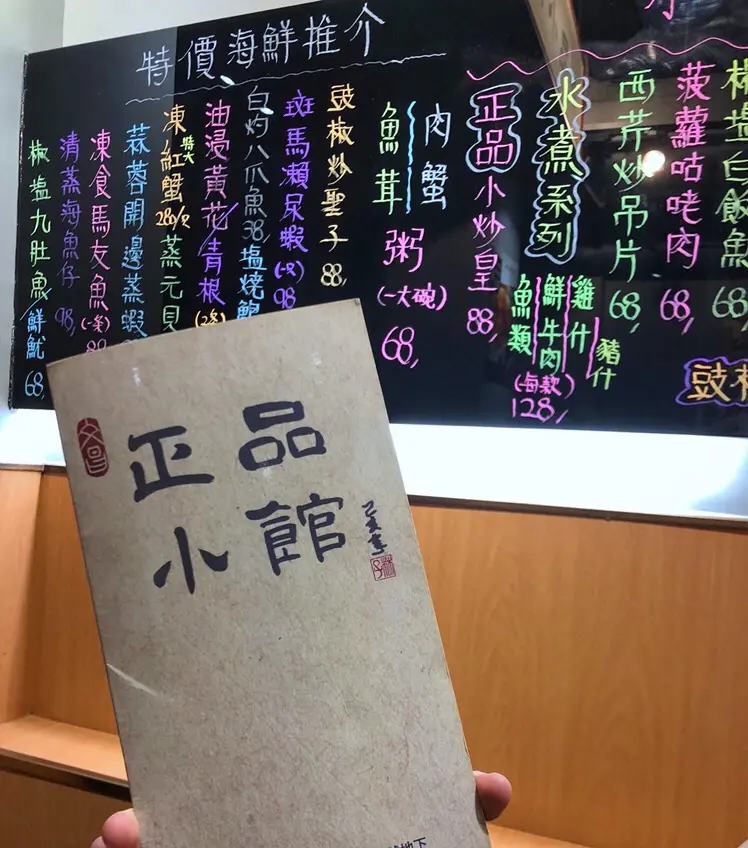 特價海鮮推介
椒塩白飯魚
68
菠蘿咕咾肉
68,
西芹炒吊片
68,
水煮系列
雞什
豬什
鮮牛肉
魚類
(每款)
128,
正品小炒皇
88,
肉蟹
魚茸
粥
(一大碗)
68,
豉椒炒聖子
88,
斑馬瀨尿蝦
(一只)
98
白灼八爪魚38,
塩燒鮑
油浸黃花/青根
凍特大紅蟹280/只
蒸元貝
蒜蓉開邊蒸蝦
凍食馬友魚
(一条)
清蒸海魚仔
98,
椒塩九肚魚/鮮魷
68,
文昌
正品
小館
己亥年
地下